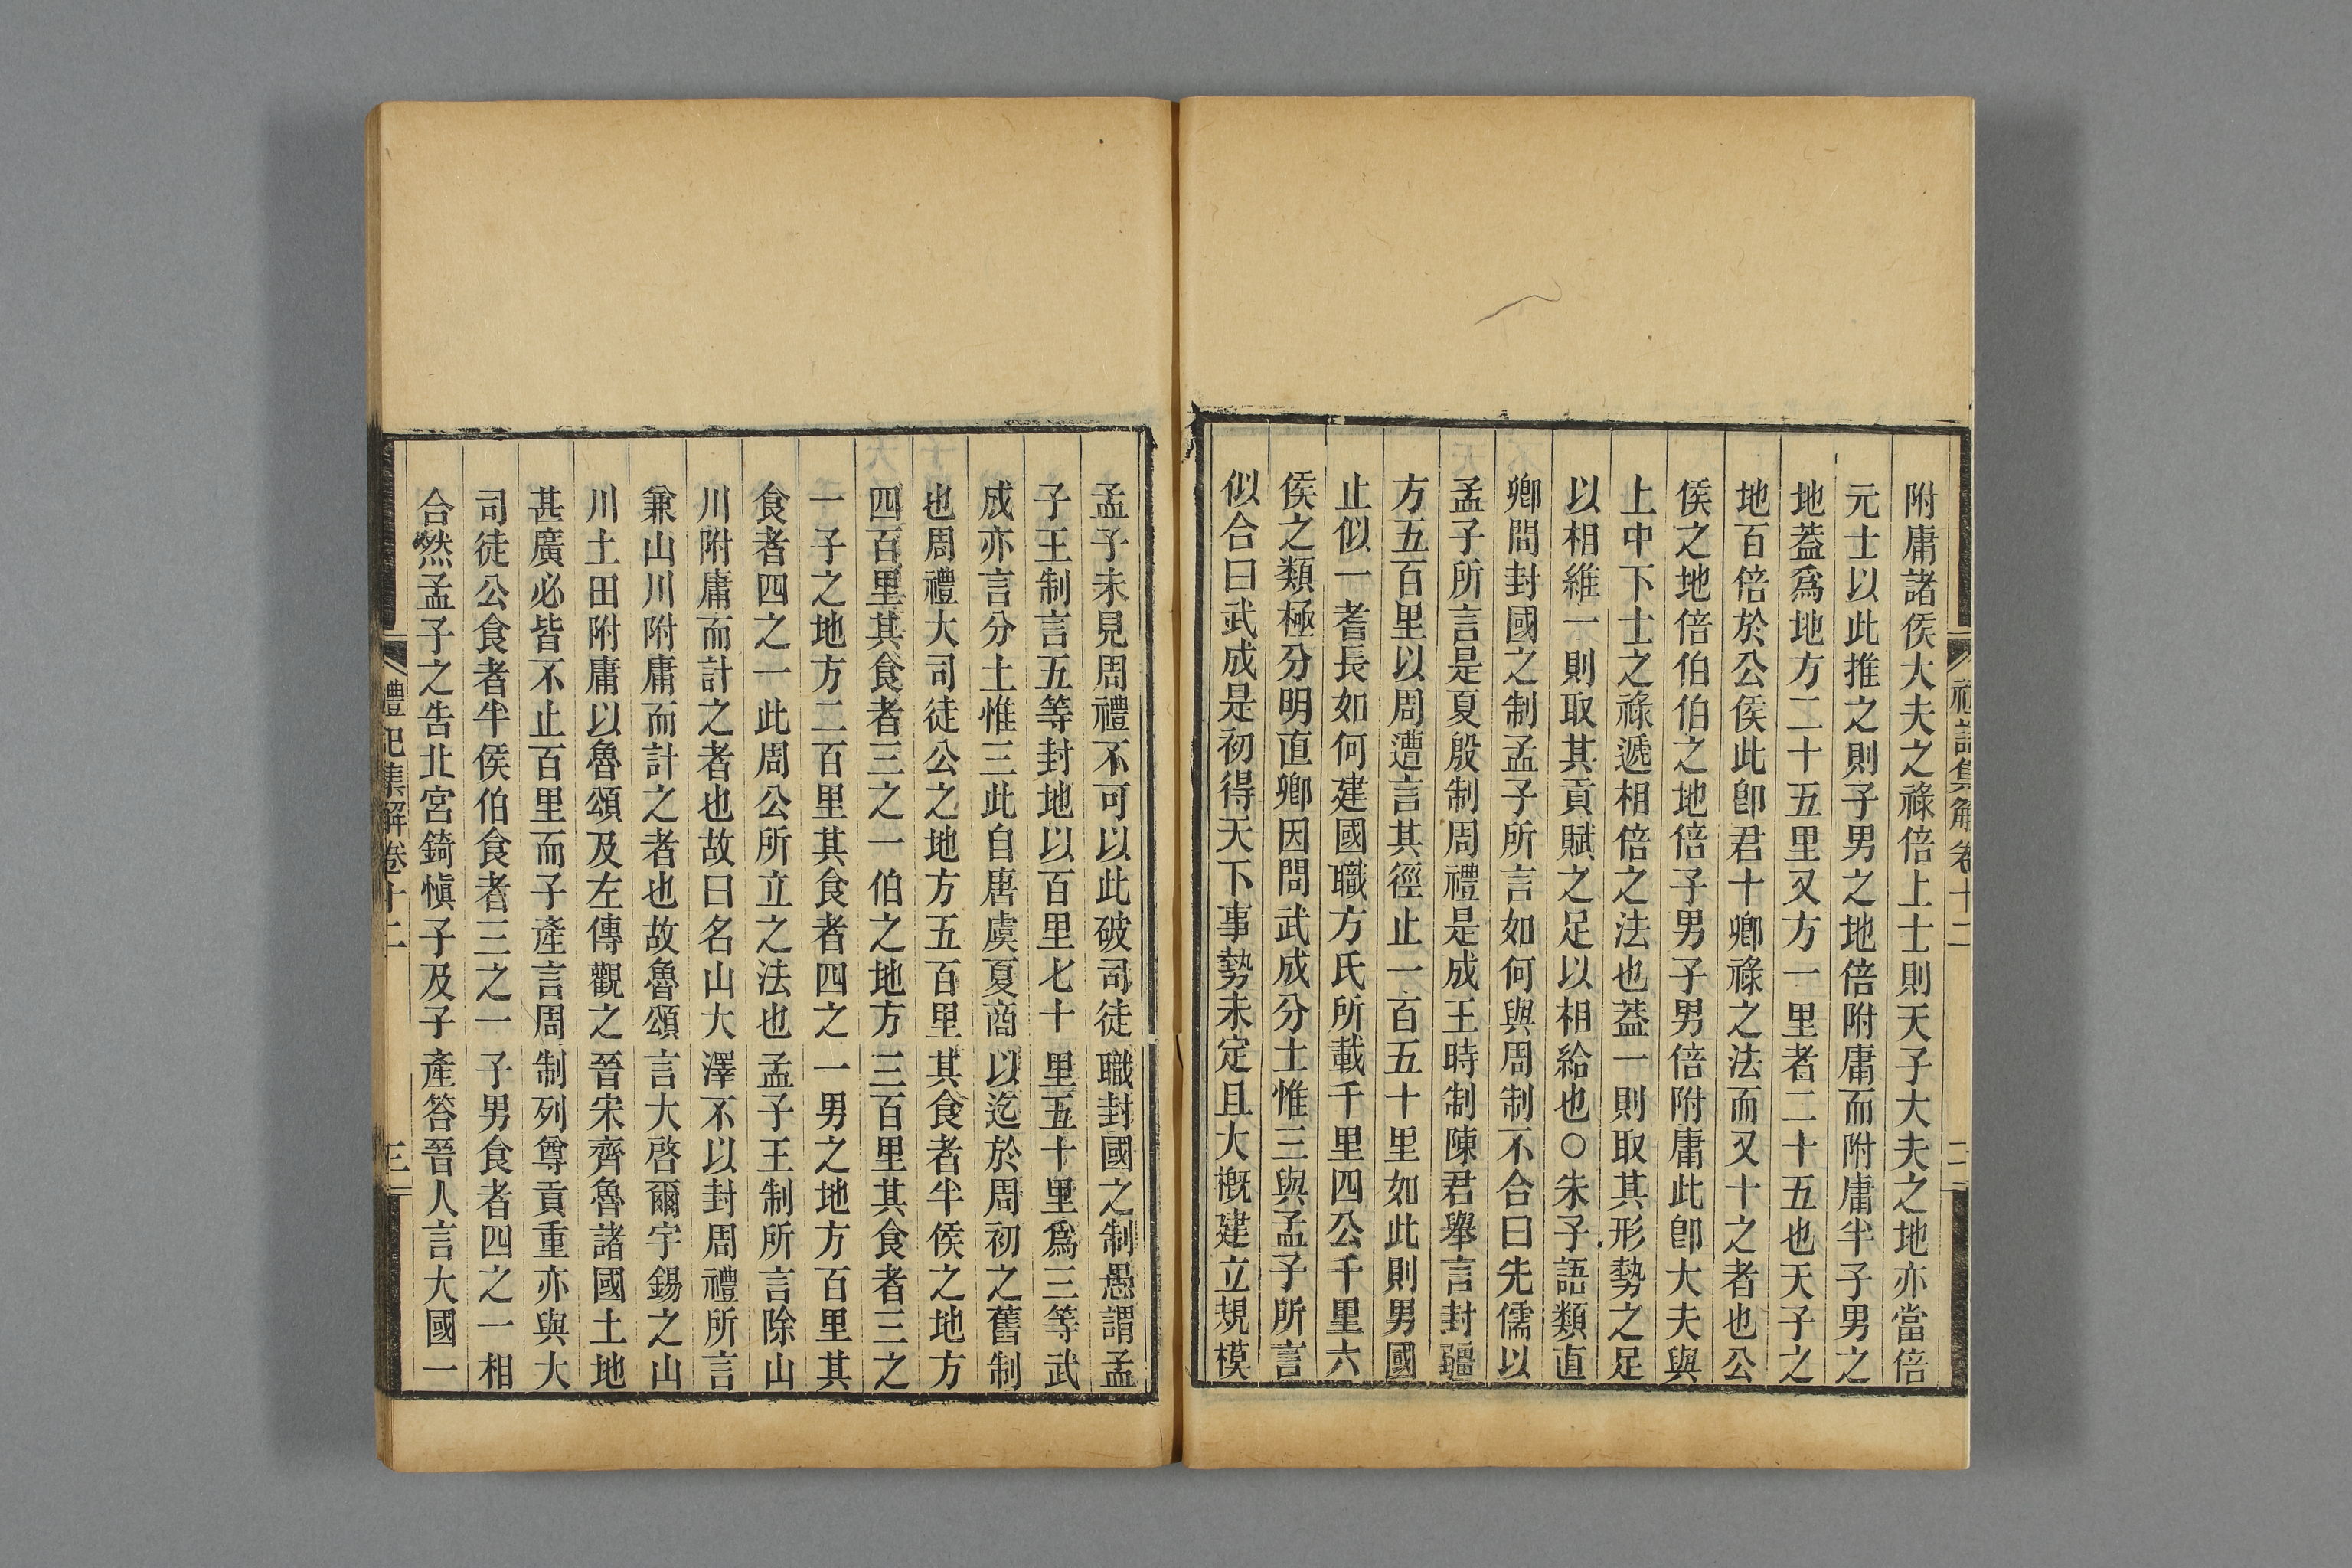 禮記集解卷十二
二
附庸諸侯大夫之祿倍上士則天子大夫之地亦當倍
元士以此推之則子男之地倍附庸而附庸半子男之
地葢爲地方二十五里又方一里者二十五也天子之
地百倍於公侯此卽君十卿祿之法而又十之者也公
侯之地倍伯伯之地倍子男子男倍附庸此卽大夫與
上中下士之祿遞相倍之法也葢一則取其形勢之足
以相維一則取其貢賦之足以相給也○朱子語類直
卿問封國之制孟子所言如何與周制不合曰先儒以
孟子所言是夏殷制周禮是成王時制陳君舉言封疆
方五百里以周遭言其徑止一百五十里如此則男國
止似一耆長如何建國職方氏所載千里四公千里六
侯之類極分明直卿因問武成分土惟三與孟子所言
似合曰武成是初得天下事勢未定且大槪建立規模
孟子未見周禮不可以此破司徒職封國之制愚謂孟
子王制言五等封地以百里七十里五十里爲三等武
成亦言分土惟三此自唐虞夏商以迄於周初之舊制
也周禮大司徒公之地方五百里其食者半侯之地方
四百里其食者三之一伯之地方三百里其食者三之
一子之地方二百里其食者四之一男之地方百里其
食者四之一此周公所立之法也孟子王制所言除山
川附庸而計之者也故曰名山大澤不以封周禮所言
兼山川附庸而計之者也故魯頌言大啓爾宇錫之山
川土田附庸以魯頌及左傳觀之晉宋齊魯諸國土地
甚廣必皆不止百里而子產言周制列尊貢重亦與大
司徒公食者半侯伯食者三之一子男食者四之一相
合然孟子之告北宮錡愼子及子產答晉人言大國一
禮記集解卷十二
三